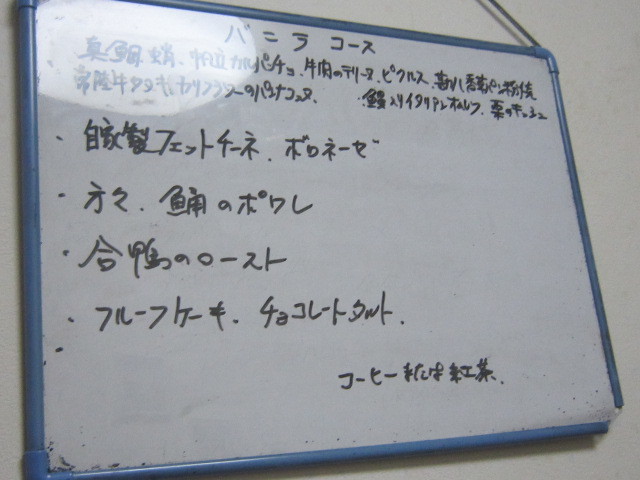 バニラコース
真鯛、蛸、帆立カルパッチョ、牛肉のテリーヌ、ピクルス、
常陸牛タタキ、カリフラワーのパンナコッタ 入りイタリアンオムレツ、栗のキッシュ
・自家製フェットチーネ、ボロネーゼ
・方々、鮪のポワレ
・合鴨のロースト
・フルーフケーキ、チョコレートタルト、
コーヒーまたは紅茶、